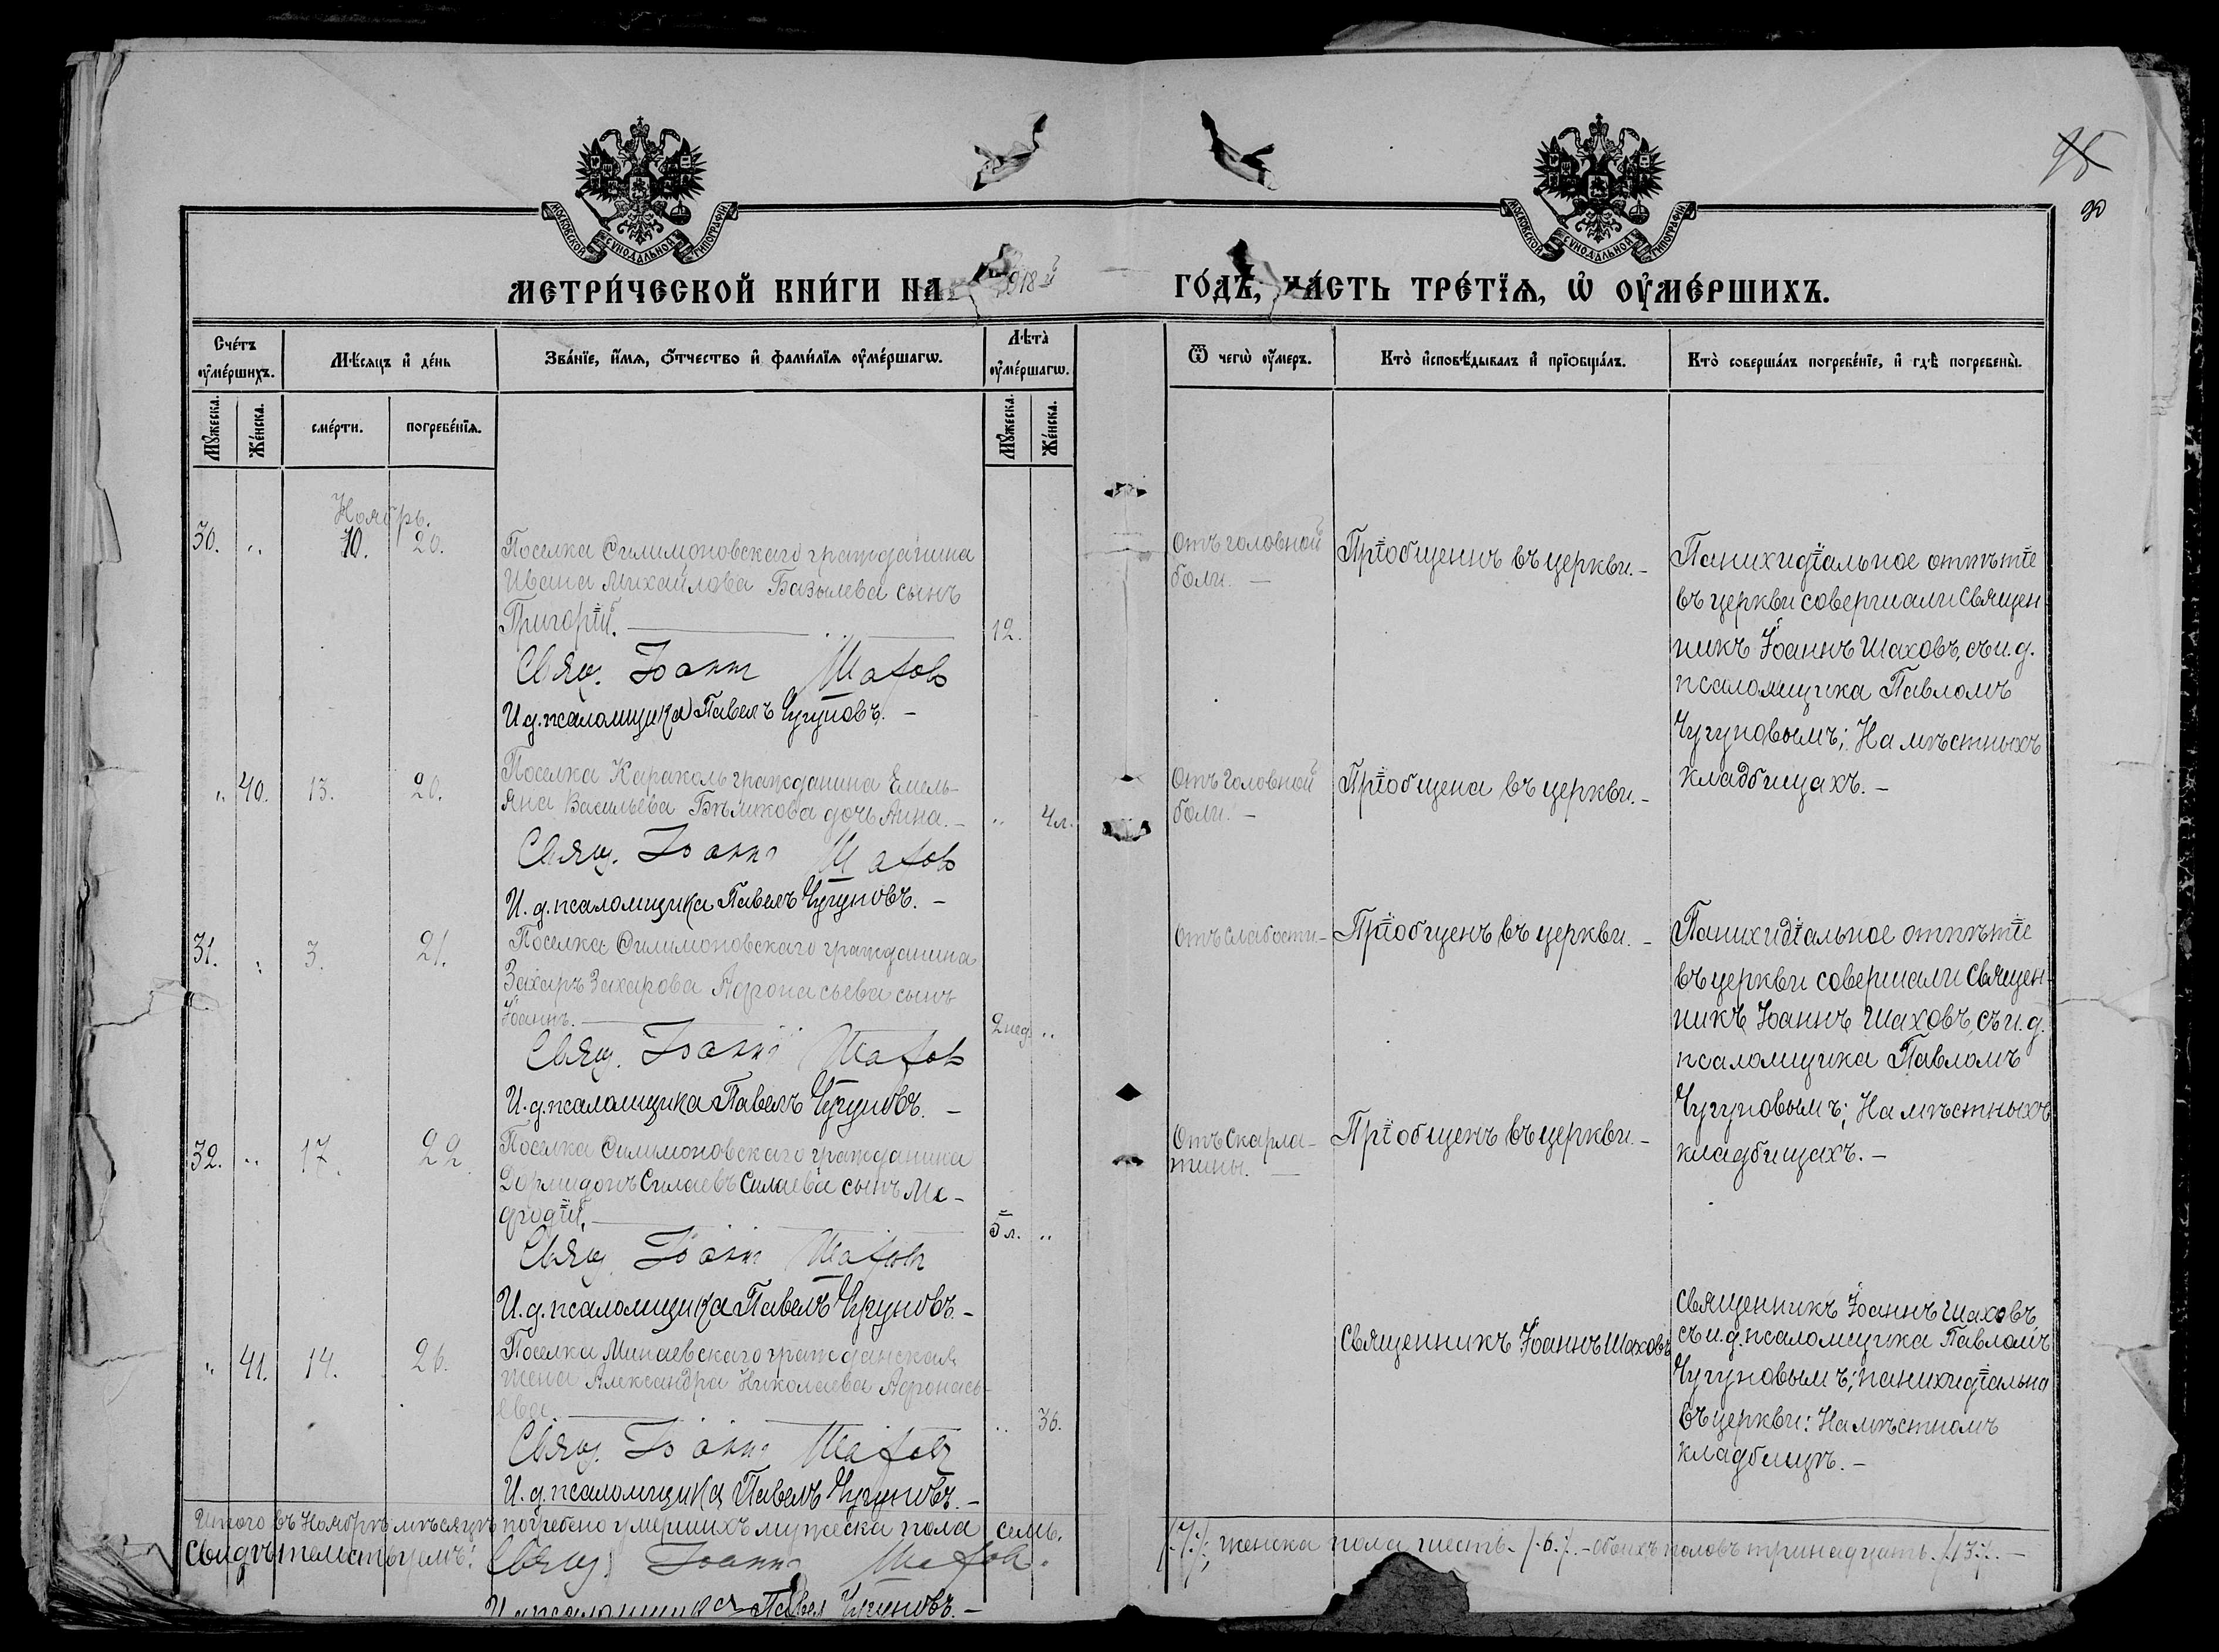 МОСКОВСКОЙ СѴНОДАЛЬНОЙ ТИПОГРАФІИ
МОСКОВСКОЙ СѴНОДАЛЬНОЙ ТИПОГРАФІИ
90
МЕТРИ́ЧЕСКОЙ КНИ́ГИ НА 1918 й
ГО́ДЪ, ЧА́СТЬ ТРЕ́ТЇѦ, Ѡ҆ ОУ҆МЕ́РШИХЪ.
Сче́тъ оу҆ме́ршихъ.
Мѣ́сяцъ и҆ де́нь
Зва́нїе, и҆́мѧ, ѻ҆́тчество и҆ фамилїѧ оу҆ме́ршагѡ.
Лѣ́та̀ оу҆ме́ршагѡ.
Ѿ чегѡ̀ оу҆́меръ.
Кто̀ и҆сповѣ́дывалъ и҆ прїѡбща́лъ.
Кто̀ соверша́лъ погребе́нїе, и҆ гдѣ̀ погребены̀.
Мꙋ́жеска.
Же́нска.
сме́рти.
погребе́нїѧ.
Мꙋ́жеска.
Же́нска.
Ноябрь.
30. „ 10. 20.
Поселка Филимоновскаго гражданина
Ивана Михайлова Базылева сынъ
Григорій.
12.
Свящ. Іоаннъ Шаховъ
И д. псаломщика Павелъ Чугуновъ. –
Отъ головной
боли. –
Пріобщенъ въ церкви. –
Панихидіальное отпѣтіе
въ церкви совершали священ-
никъ Іоаннъ Шаховъ, съ и. д.
псаломщика Павломъ
Чугуновымъ; На мѣстныхъ
кладбищахъ. –
„ 40. 13. 20.
Поселка Караколь гражданина Емель-
яна Васильева Бѣликова дочь Анна. –
„ 4 л.
Свящ. Іоаннъ Шаховъ
И. д. псаломщика Павелъ Чугуновъ. –
Отъ головной
боли. –
Пріобщена въ церкви. –
31. „ 3. 21.
Поселка Филимоновскаго гражданина
Захаръ Захарова Афонасьева сынъ
Іоаннъ.
2 нед. „
Свящ. Іоаннъ Шаховъ
И. д. псаломщика Павелъ Чугуновъ. –
Отъ слабости –
Пріобщенъ въ церкви. –
Панихидіальное отпѣтіе
въ церкви совершали священ-
никъ Іоаннъ Шаховъ, съ и. д.
псаломщика Павломъ
Чугуновымъ; На мѣстныхъ
кладбищахъ. –
32. „ 17. 22.
Поселка Филимоновскаго гражданина
Дормидонъ Силаевъ Силаева сынъ Ме-
фодій.
5 л. „
Свящ. Іоаннъ Шаховъ
И. д. псаломщика Павелъ Чугуновъ. –
Отъ скарла-
тины. –
Пріобщенъ въ церкви. –
„ 41. 14. 26.
Поселка Минаевскаго гражданская
жена Александра Николаева Афонась-
ева.
„ 36.
Свящ. Іоаннъ Шаховъ
И. д. псаломщика Павелъ Чугуновъ. –
Священникъ Іоаннъ Шаховъ
Священникъ Іоаннъ Шаховъ,
съ и. д. псаломщика Павломъ
Чугуновымъ; панихидіально
въ церкви: На мѣстномъ
кладбищѣ. –
Итого въ Ноябрѣ мѣсяцѣ погребено умершихъ мужеска пола семь.
/.7./; женска пола шесть. /.6./. – обоихъ половъ тринадцать. /.13./. –
Свидѣтельствуемъ: Свящ. Іоаннъ Шаховъ.
И д псаломщика Павел Чугуновъ. –